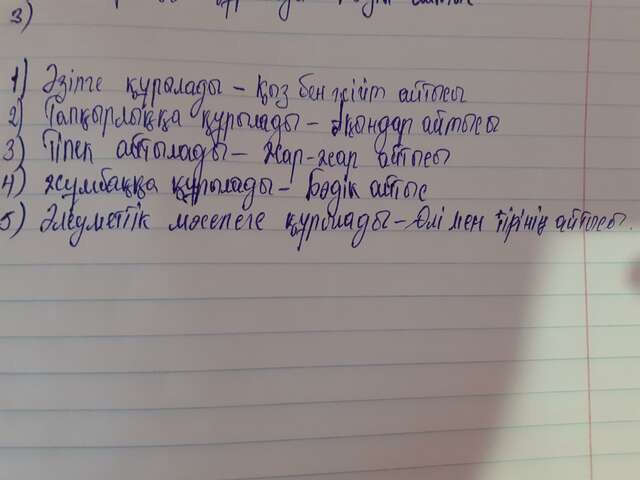 3)
1) Әзілге құрылады – Қыз бен жігіт айтысы
2) Тапқырлыққа құрылады – Ақындар айтысы
3) Тілек айтылады – Жар-жар айтысы
4) Жұмбаққа құрылады – Бәдік айтыс
5) Әлеуметтік мәселеге құрылады – Өлі мен тірінің айтысы.